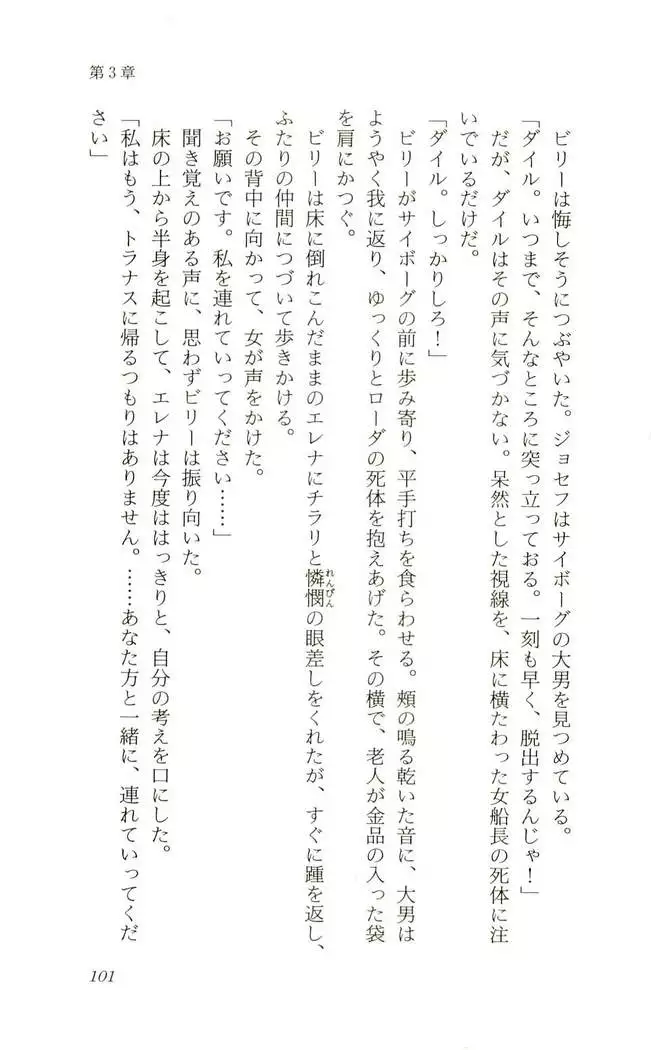 第3章
ビリーは悔しそうにつぶやいた。ジョセフはサイボーグの大男を見つめている。
「ダイル。いつまで、そんなところに突っ立っておる。一刻も早く、脱出するんじゃ！」
だが、ダイルはその声に気づかない。呆然とした視線を、床に横たわった女船長の死体に注
いでいるだけだ。
「ダイル。しっかりしろ！」
ビリーがサイボーグの前に歩み寄り、平手打ちを食らわせる。頬の鳴る乾いた音に、大男は
ようやく我に返り、ゆっくりとローダの死体を抱えあげた。その横で、老人が金品の入った袋
を肩にかつぐ。
ビリーは床に倒れこんだままのエレナにチラリと憐憫の眼差しをくれたが、すぐに踵を返し、
れんびん
ふたりの仲間につづいて歩きかける。
その背中に向かって、女が声をかけた。
「お願いです。私を連れていってください……」
聞き覚えのある声に、思わずビリーは振り向いた。
床の上から半身を起こして、エレナは今度ははっきりと、自分の考えを口にした。
「私はもう、トラナスに帰るつもりはありません。……あなた方と一緒に、連れていってくだ
さい」
101